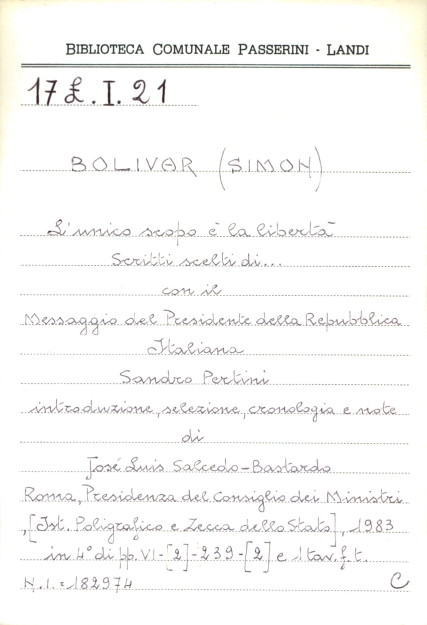 BIBLIOTECA COMUNALE PASSERINI - LANDI
17 £. I. 21
BOLIVAR (SIMON)
L'unico scopo è la libertà
Scritti scelti di...
con il
Messaggio del Presidente della Repubblica
Italiana
Sandro Pertini
introduzione, selezione, cronologia e note
di
José Luis Salcedo-Bastardo
Roma, Presidenza del Consiglio dei Ministri
,[Ist. Poligrafico e Zecca dello Stato], 1983
in 4° di pp. VI-[2]-239-[2] e 1 tav. f. t.
N. I. = 182974 C